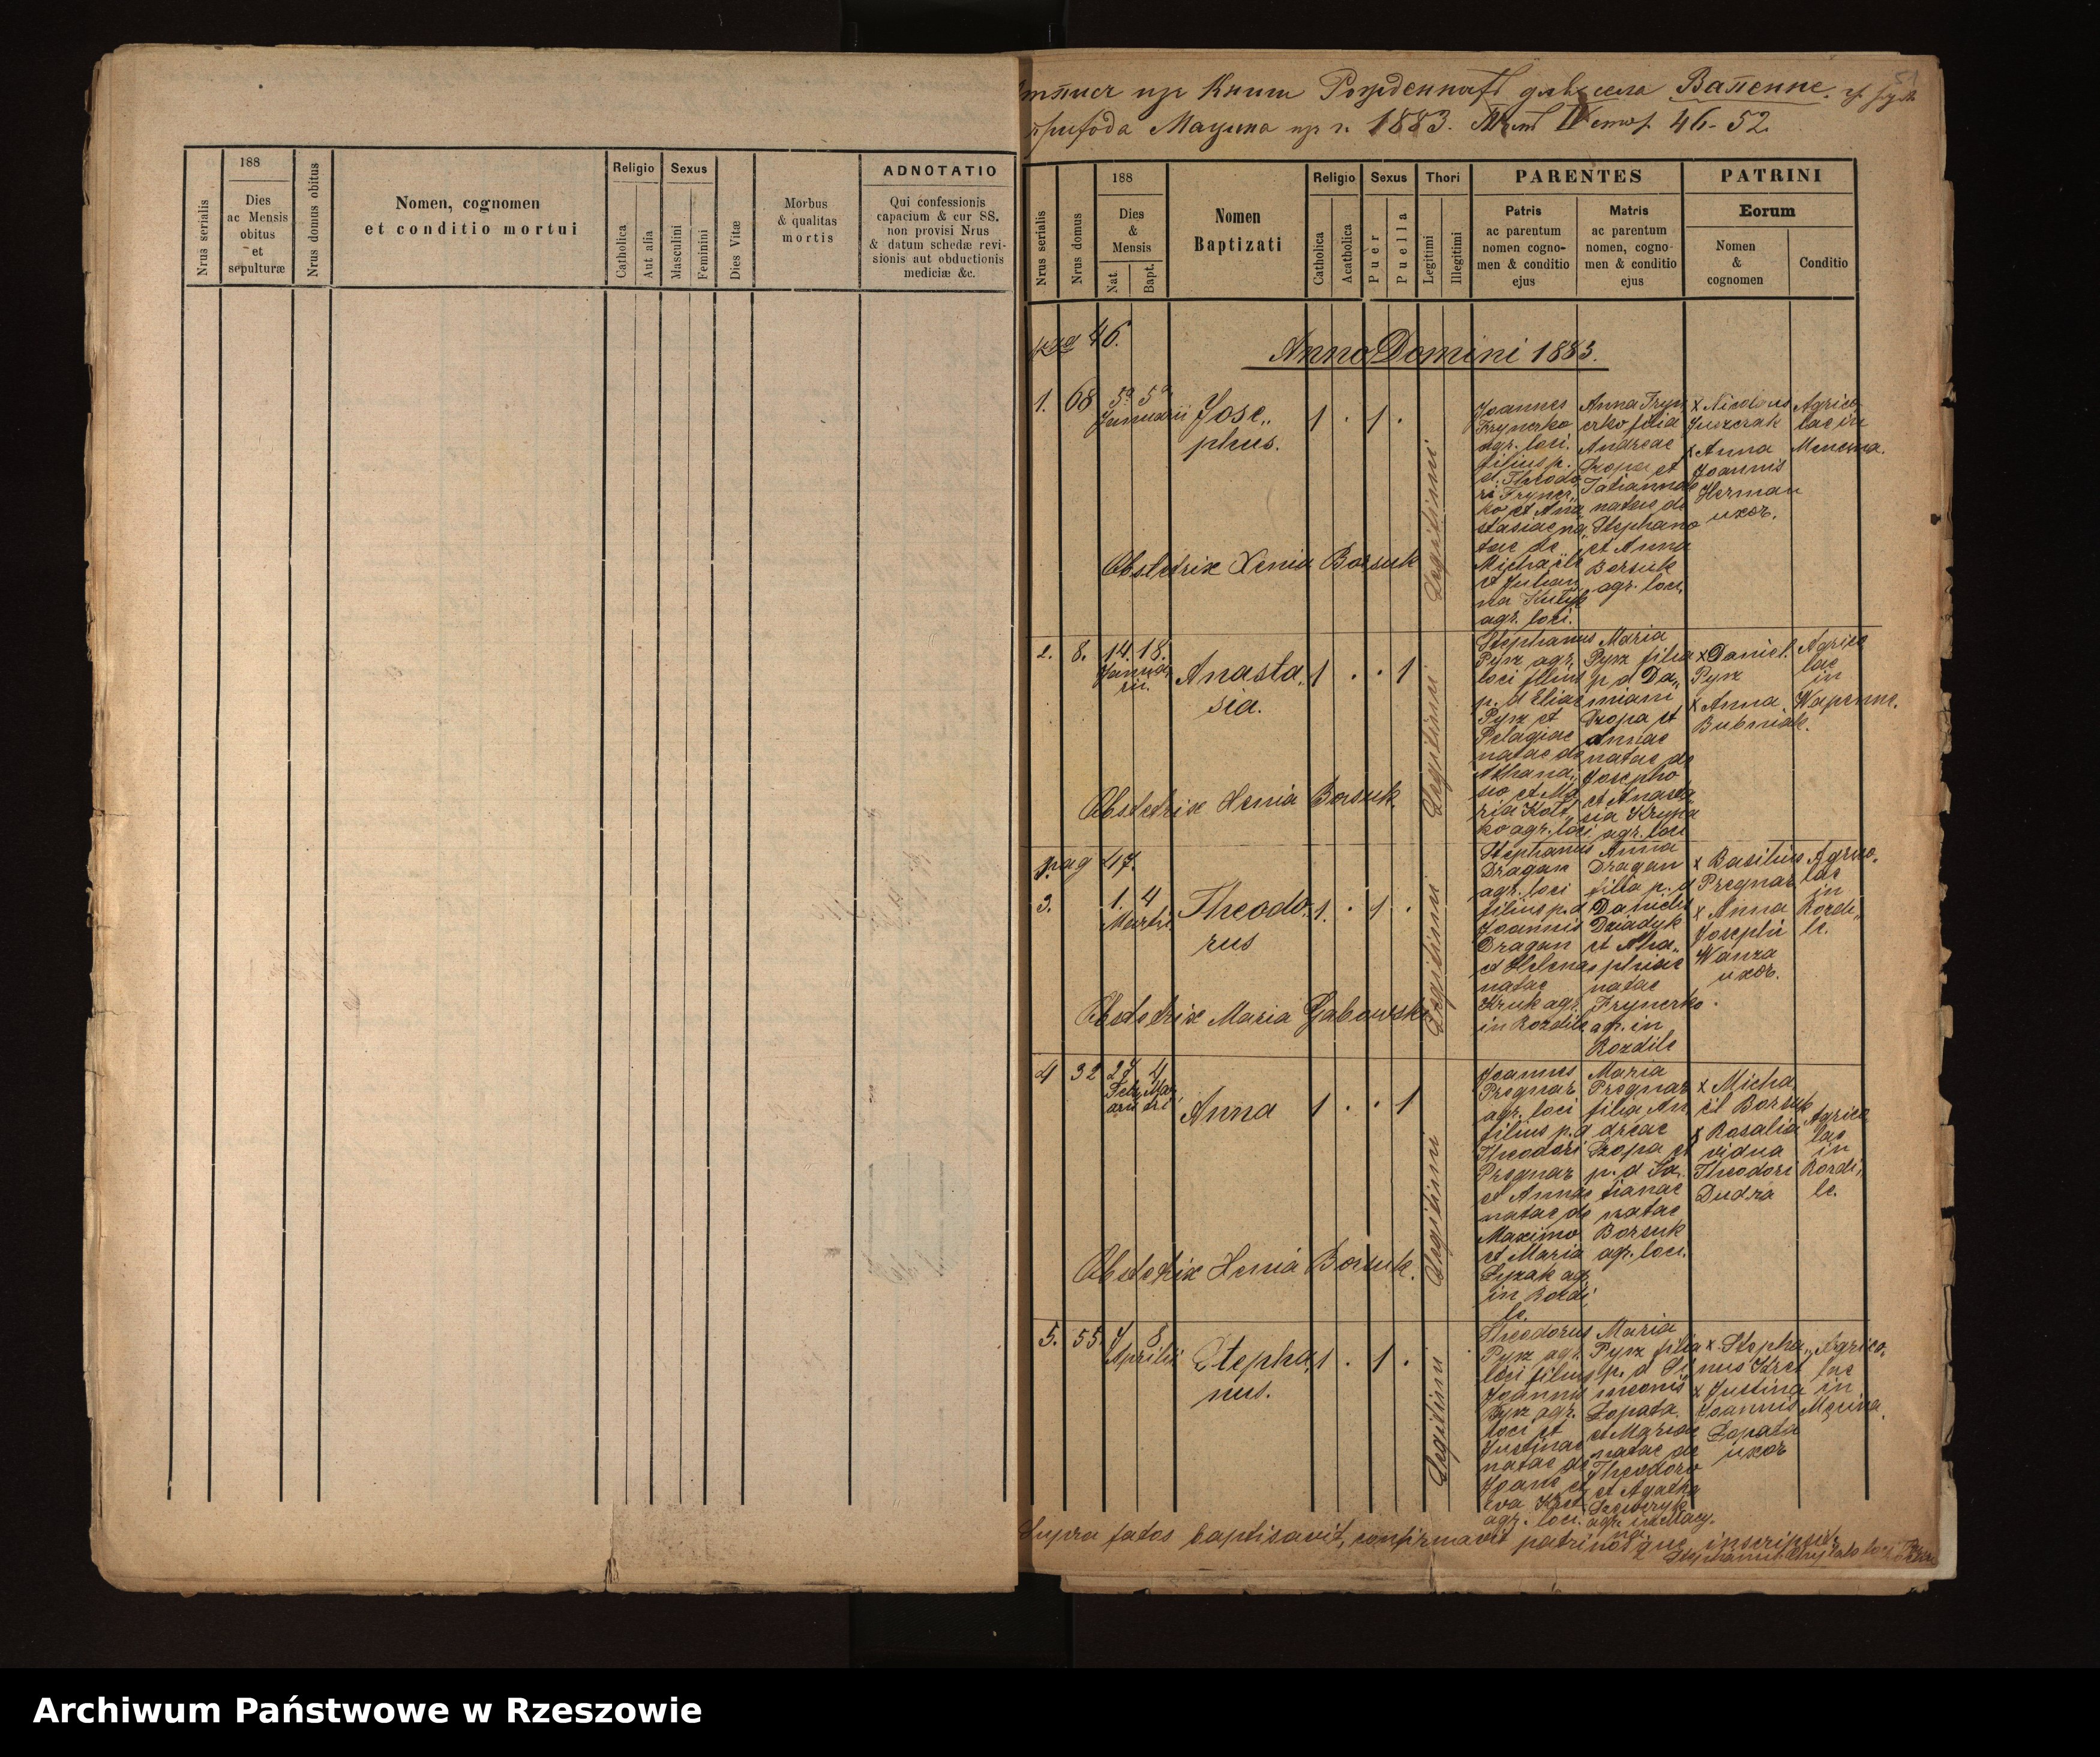 188
Nrus serialis
Dies
ac Mensis
obitus
et
sepulturæ
Nrus domus obitus
Nomen, cognomen
et conditio mortui
Religio
Catholica
Aut alia
Sexus
Masculini
Feminini
Dies Vitæ
Morbus
& qualitas
mortis
ADNOTATIO
Qui confessionis
capacium & cur SS.
non provisi Nrus
& datum schedæ revi-
sionis aut obductionis
mediciæ &c.
51
села Вапенне.
1883. IV 46-52.
Nrus serialis
Nrus domus
188
Dies
&
Mensis
Nat.
Bapt.
Nomen
Baptizati
Religio
Catholica
Acatholica
Sexus
Puer
Puella
Thori
Legitimi
Illegitimi
PARENTES
Patris
ac parentum
nomen cogno-
men & conditio
ejus
Matris
ac parentum
nomen, cogno-
men & conditio
ejus
PATRINI
Eorum
Nomen
&
cognomen
Conditio
pag 46.
Anno Domini 1883.
1. 68 5ª 5ª
Januarii
Jose„
phus.
1 . 1 .
Legitimi
Joannes
Fryncko
agr. loci.
filius p.
d. Theodo
ri Frync„
ko et Ana
stasiae na„
tae de
Michaële
et Julian„
na
agr. loci.
Anna Fryn
cko filia
Andreae
Dzopa et
Tatiannae
natae de
Stephano
et Anna
Borsuk
agr. loci.
x Nicolaus
Juszczak
x Anna
Joannis
Herman
uxor.
Agrico
lae in
Mencina.
Obstetrix Xenia Borsuk
2. 8. 14. 18.
Janua„
rii.
Anasta„
sia.
1 . . 1
Legitimi
Stephanus
Pyrz agr.
loci filius
p. d Eliae
Pyrz et
Pelagiae
natae de
Athana„
sio et Ma
ria Kot„
ko agr. loci
Maria
Pyrz filia
p d Da„
miani
Dzopa et
Annae
natae de
Josepho
et Anasta„
sia Krupa
agr. loci
x Daniel
Pyrz
x Anna
Bubniak.
Agrico
lae
in
Wapenne.
Obstetrix Xenia Borsuk
pag 47.
3. 1. 4
Martii
Theodo„
rus
1. . 1 .
Legitimi
Stephanus
Dragan
agr. loci
filius p. d
Joannis
Dragan
et Helenae
natae
Kruk agr.
in Rozdile
Anna
Dragan
filia p. d
Danielis
Dziadyk
et Aha„
phiae
natae
Fryncko
agr. in
Rozdile
x Basilius
Pregnar
x Anna
Josephi
Wanza
uxor.
Agrico„
lae
in
Rozdi„
le.
Obstetrix Maria Gabowska
4 32 27 4
Febru
arii
Mar
tii
Anna
1 . . 1
Legitimi
Joannes
Pregnar
agr. loci
filius p. d
Theodori
Pregnar
et Annae
natae de
Maximo
et Maria
agr.
in Rozdi„
le.
Maria
Pregnar
filia An
dreae
Dzopa et
p. d Ta„
tianae
natae
Borsuk
agr. loci.
x Micha„
ël Borsuk
x Rosalia
vidua
Theodori
Dudra
Agrico
lae
in
Rozdi„
le.
Obstetrix Xenia Borsuk.
5. 55. 7 8
Aprilis
Stepha„
nus.
1 . 1 .
Legitimi
Theodorus
Pyrz agr.
loci filius
Joannis
Pyrz agr.
loci et
Justinae
natae de
Joane et
Eva
agr. loci.
Maria
Pyrz filia
p. d Si
meonis
Łopata
et Mariae
natae de
Theodoro
et Agatha
Szewczyk
agr. in Macy„
na.
x Stepha„
nus
x Justina
Joannis
Łopata
uxor
Agrico„
lae
in
Mecina.
Supra fatos baptisavit, confirmavit patrinosque inscripsit
Archiwum Państwowe w Rzeszowie